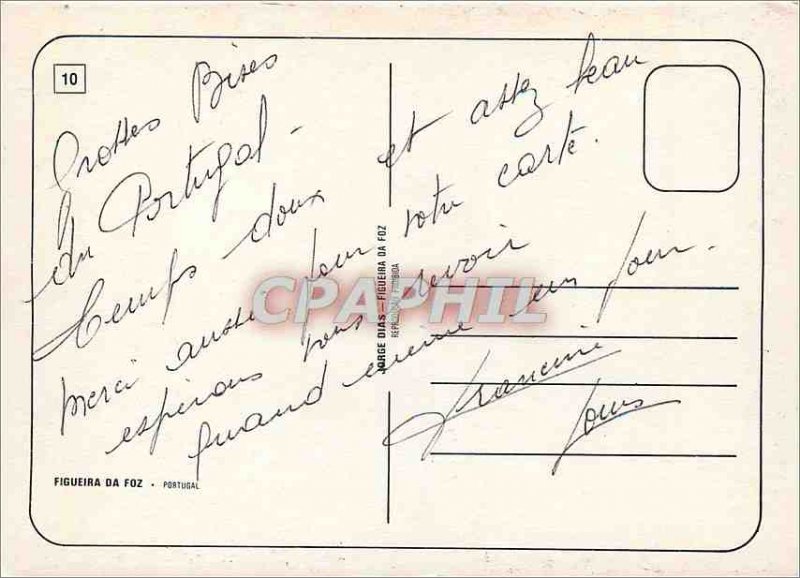 10
Grosses Bises
du Portugal -
Temps doux et assez beau
Merci aussi pour votre carte.
espérons vous revoir
quand même un jour.
Francine
Louis
CPAPHIL
JORGE DIAS - FIGUEIRA DA FOZ
REPRODUÇÃO PROIBIDA
FIGUEIRA DA FOZ • PORTUGAL